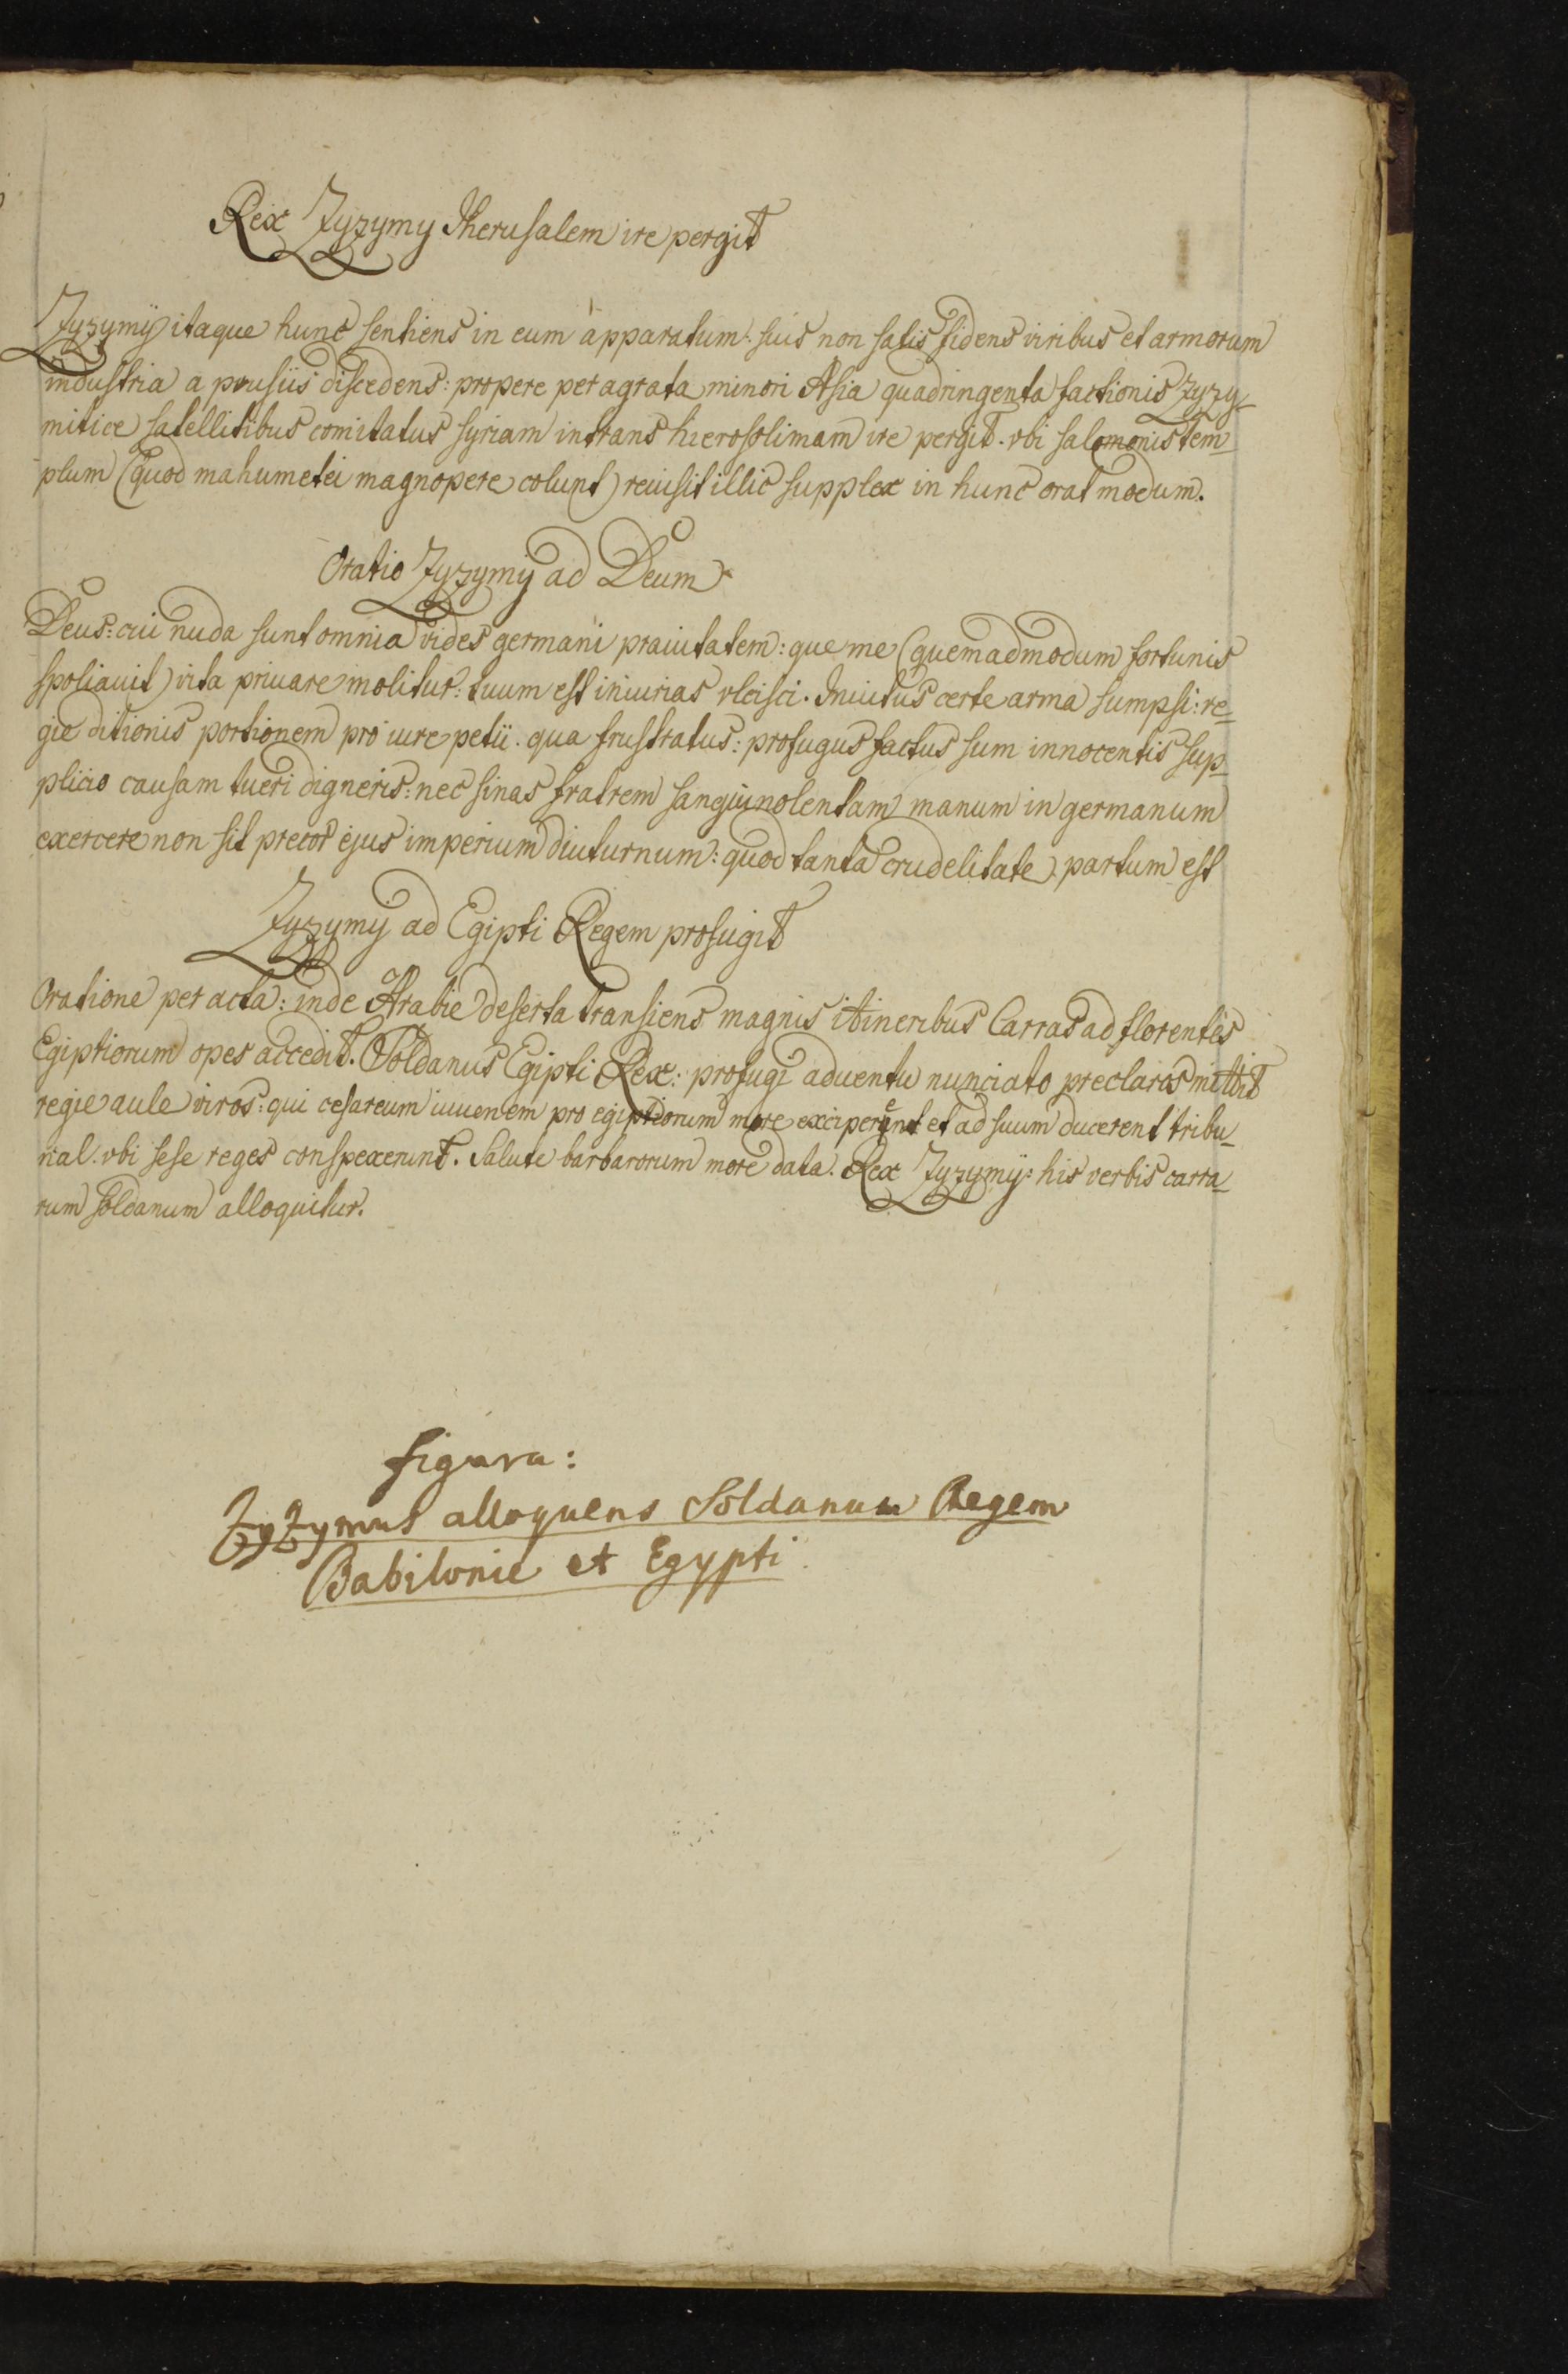 Rex Zyzymy Jherusalem ire pergit
Zyzymÿ itaque hunc sentiens in eum apparatum: suis non satis fidens viribus et armorum
industria a prusiis discedens: propere peragrata minori Asia quadringenta factionis Zyzy-
mitice satellitibus comitatus syriam intrans hierosolimam ire pergit. vbi salomonis tem-
plum (quod mahumetei magnopere colunt) reuisit illic supplex in hunc orat modum.
Oratio Zyzymÿ ad Deum
Deus: cui nuda sunt omnia vides germani prauitatem: que me (quemadmodum fortunis
spoliauit) vita priuare molitur: tuum est iniurias vlcisci. Inuitus certe arma sumpsi: re-
gie ditionis portionem pro iure petii. qua frustratus: profugus factus sum innocentis sup-
plicio causam tueri digneris: nec sinas fratrem sanguinolentam manum in germanum
exercere non sit precor ejus imperium diuturnum: quod tanta crudelitate partum est
Zyzymÿ ad Egipti Regem profugit
Oratione per acta: inde Arabie deserta transiens magnis itineribus Carras ad florentes
Egiptiorum opes accedit. Soldanus Egipti Rex: profugi aduentu nunciato preclaros mittit
regie aule viros: qui cesareum iuuenem pro egiptiorum more exciperent et ad suum ducerent tribu-
nal. vbi sese reges conspexerunt. Salute barbarorum more data. Rex Zyzymÿ: his verbis carra-
rum soldanum alloquitur.
figura:
Zyzymus alloquens Soldanum Regem
Babilonie et Egypti.